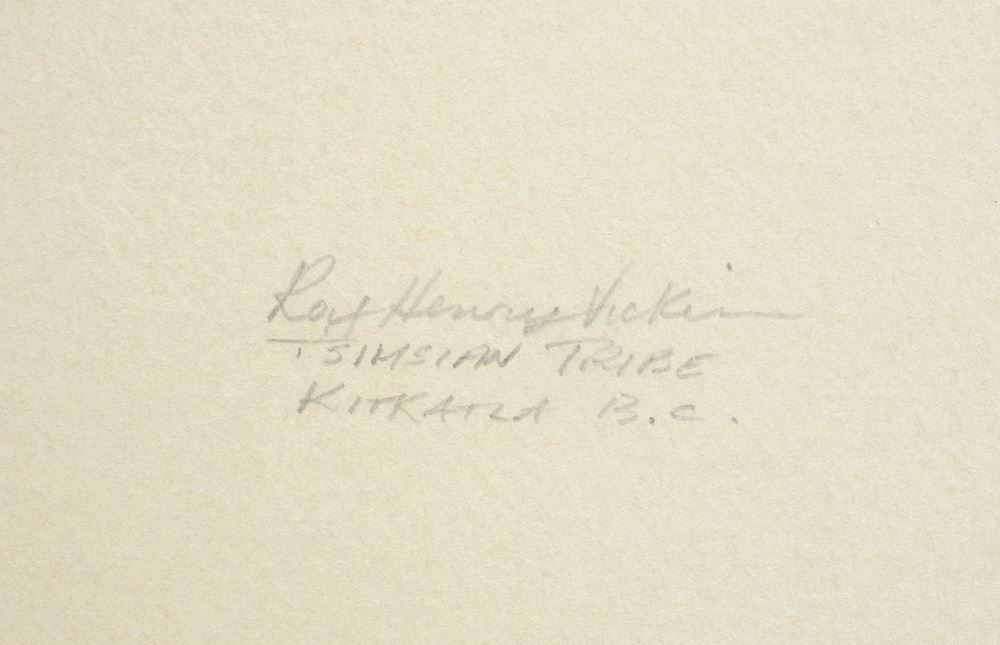 Roy Henry Vickers
TSIMSIAN TRIBE
KITKATLA B.C.